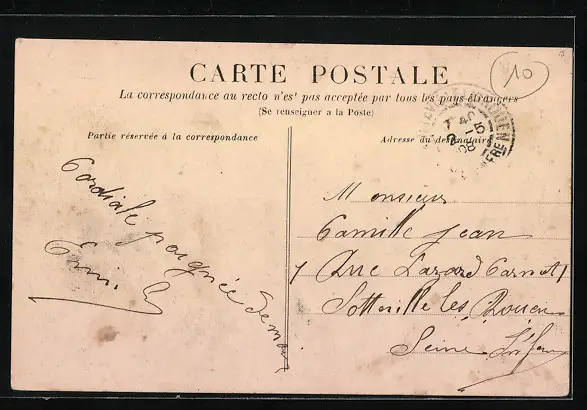 CARTE POSTALE
La correspondance au recto n'es' pas acceptée par tous les pays étrangers
(Se renseigner a la Poste)
Partie réservée à la correspondance
Adresse du destinataire
10
Cordiale poignée de main
Monsieur
Camille Jean
7 Rue Lazard Carnot 7
Sotteville les Rouen
Seine Infre